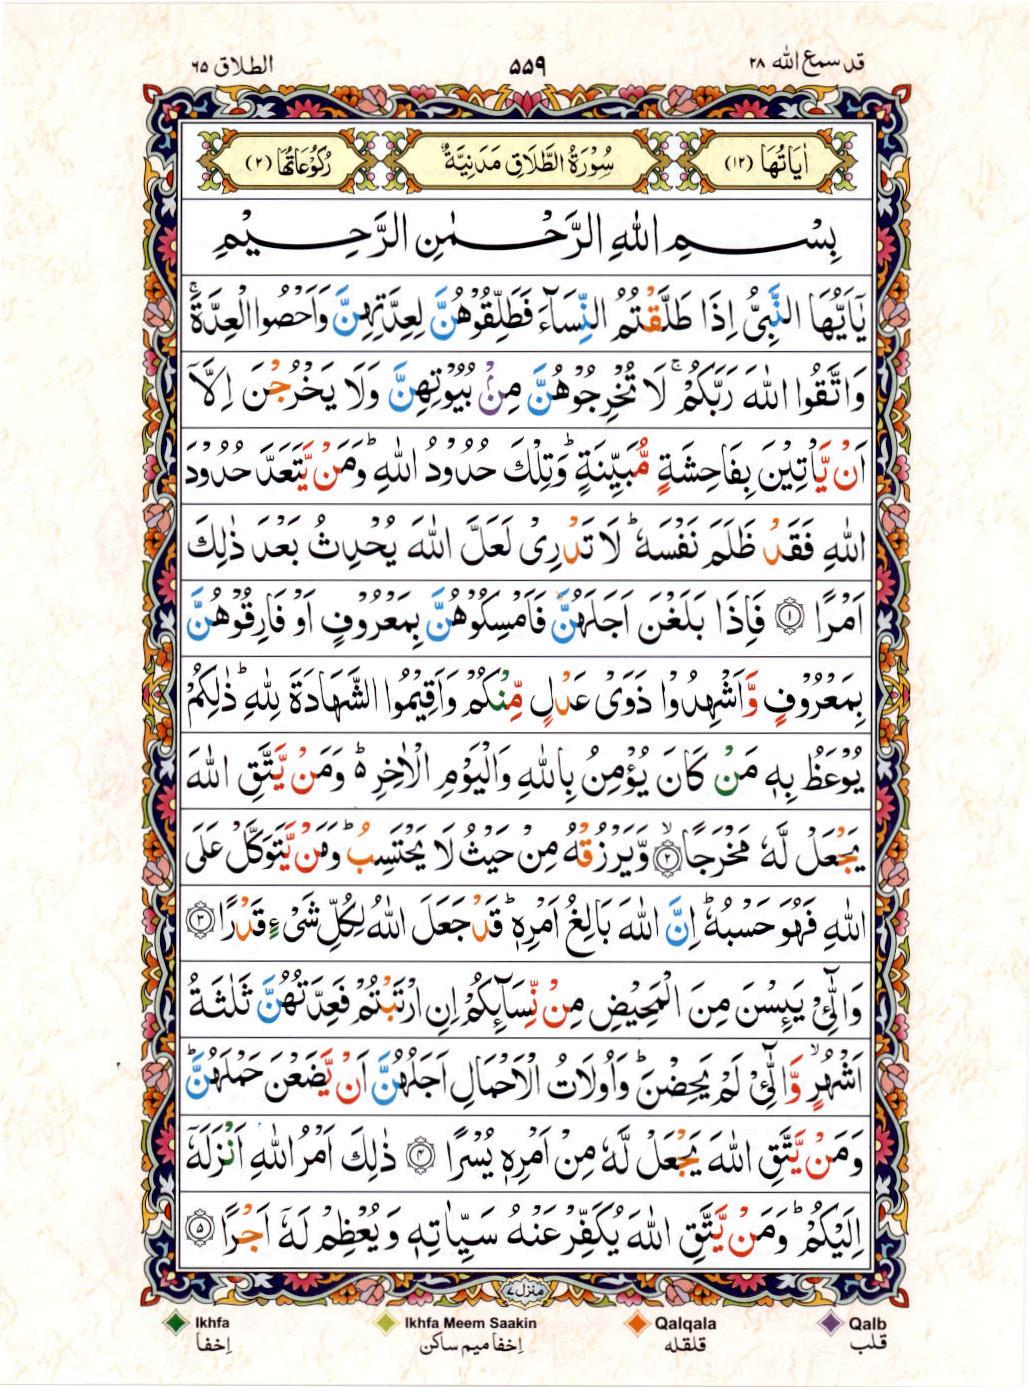 قد سمع الله ٢٨
٥٥٩
الطلاق ٦٥
اٰيَاتُهَا (١٢)
سُوْرَةُ الطَّلَاقِ مَدَنِيَّةٌ
رُكُوْعَاتُهَا (٢)
بِسْمِ اللهِ الرَّحْمٰنِ الرَّحِيْمِ
يٰٓاَيُّهَا النَّبِىُّ اِذَا طَلَّقْتُمُ النِّسَآءَ فَطَلِّقُوْهُنَّ لِعِدَّتِهِنَّ وَاَحْصُوا الْعِدَّةَ ۚ
وَاتَّقُوا اللهَ رَبَّكُمْ ۚ لَا تُخْرِجُوْهُنَّ مِنْۢ بُيُوْتِهِنَّ وَلَا يَخْرُجْنَ اِلَّآ
اَنْ يَّاْتِيْنَ بِفَاحِشَةٍ مُّبَيِّنَةٍ ؕ وَتِلْكَ حُدُوْدُ اللهِ ؕ وَمَنْ يَّتَعَدَّ حُدُوْدَ
اللهِ فَقَدْ ظَلَمَ نَفْسَهٗ ؕ لَا تَدْرِىْ لَعَلَّ اللهَ يُحْدِثُ بَعْدَ ذٰلِكَ
اَمْرًا ۝١ فَاِذَا بَلَغْنَ اَجَلَهُنَّ فَاَمْسِكُوْهُنَّ بِمَعْرُوْفٍ اَوْ فَارِقُوْهُنَّ
بِمَعْرُوْفٍ وَّاَشْهِدُوْا ذَوَىْ عَدْلٍ مِّنْكُمْ وَاَقِيْمُوا الشَّهَادَةَ لِلهِ ؕ ذٰلِكُمْ
يُوْعَظُ بِهٖ مَنْ كَانَ يُؤْمِنُ بِاللهِ وَالْيَوْمِ الْاٰخِرِ ۬ؕ وَمَنْ يَّتَّقِ اللهَ
يَجْعَلْ لَّهٗ مَخْرَجًا ۙ۝٢ وَّيَرْزُقْهُ مِنْ حَيْثُ لَا يَحْتَسِبُ ؕ وَمَنْ يَّتَوَكَّلْ عَلَى
اللهِ فَهُوَ حَسْبُهٗ ؕ اِنَّ اللهَ بَالِغُ اَمْرِهٖ ؕ قَدْ جَعَلَ اللهُ لِكُلِّ شَىْءٍ قَدْرًا ۝٣
وَالّٰٓـىِٔۡ يَئِسْنَ مِنَ الْمَحِيْضِ مِنْ نِّسَآئِكُمْ اِنِ ارْتَبْتُمْ فَعِدَّتُهُنَّ ثَلٰثَةُ
اَشْهُرٍ ۙ وَّالّٰٓـىِٔۡ لَمْ يَحِضْنَ ؕ وَاُولَاتُ الْاَحْمَالِ اَجَلُهُنَّ اَنْ يَّضَعْنَ حَمْلَهُنَّ ؕ
وَمَنْ يَّتَّقِ اللهَ يَجْعَلْ لَّهٗ مِنْ اَمْرِهٖ يُسْرًا ۝٤ ذٰلِكَ اَمْرُ اللهِ اَنْزَلَهٗٓ
اِلَيْكُمْ ؕ وَمَنْ يَّتَّقِ اللهَ يُكَفِّرْ عَنْهُ سَيِّاٰتِهٖ وَيُعْظِمْ لَهٗٓ اَجْرًا ۝٥
منزل ٧
Ikhfa
Ikhfa Meem Saakin
Qalqala
Qalb
إخفا
إخفا ميم ساكن
قلقله
قلب